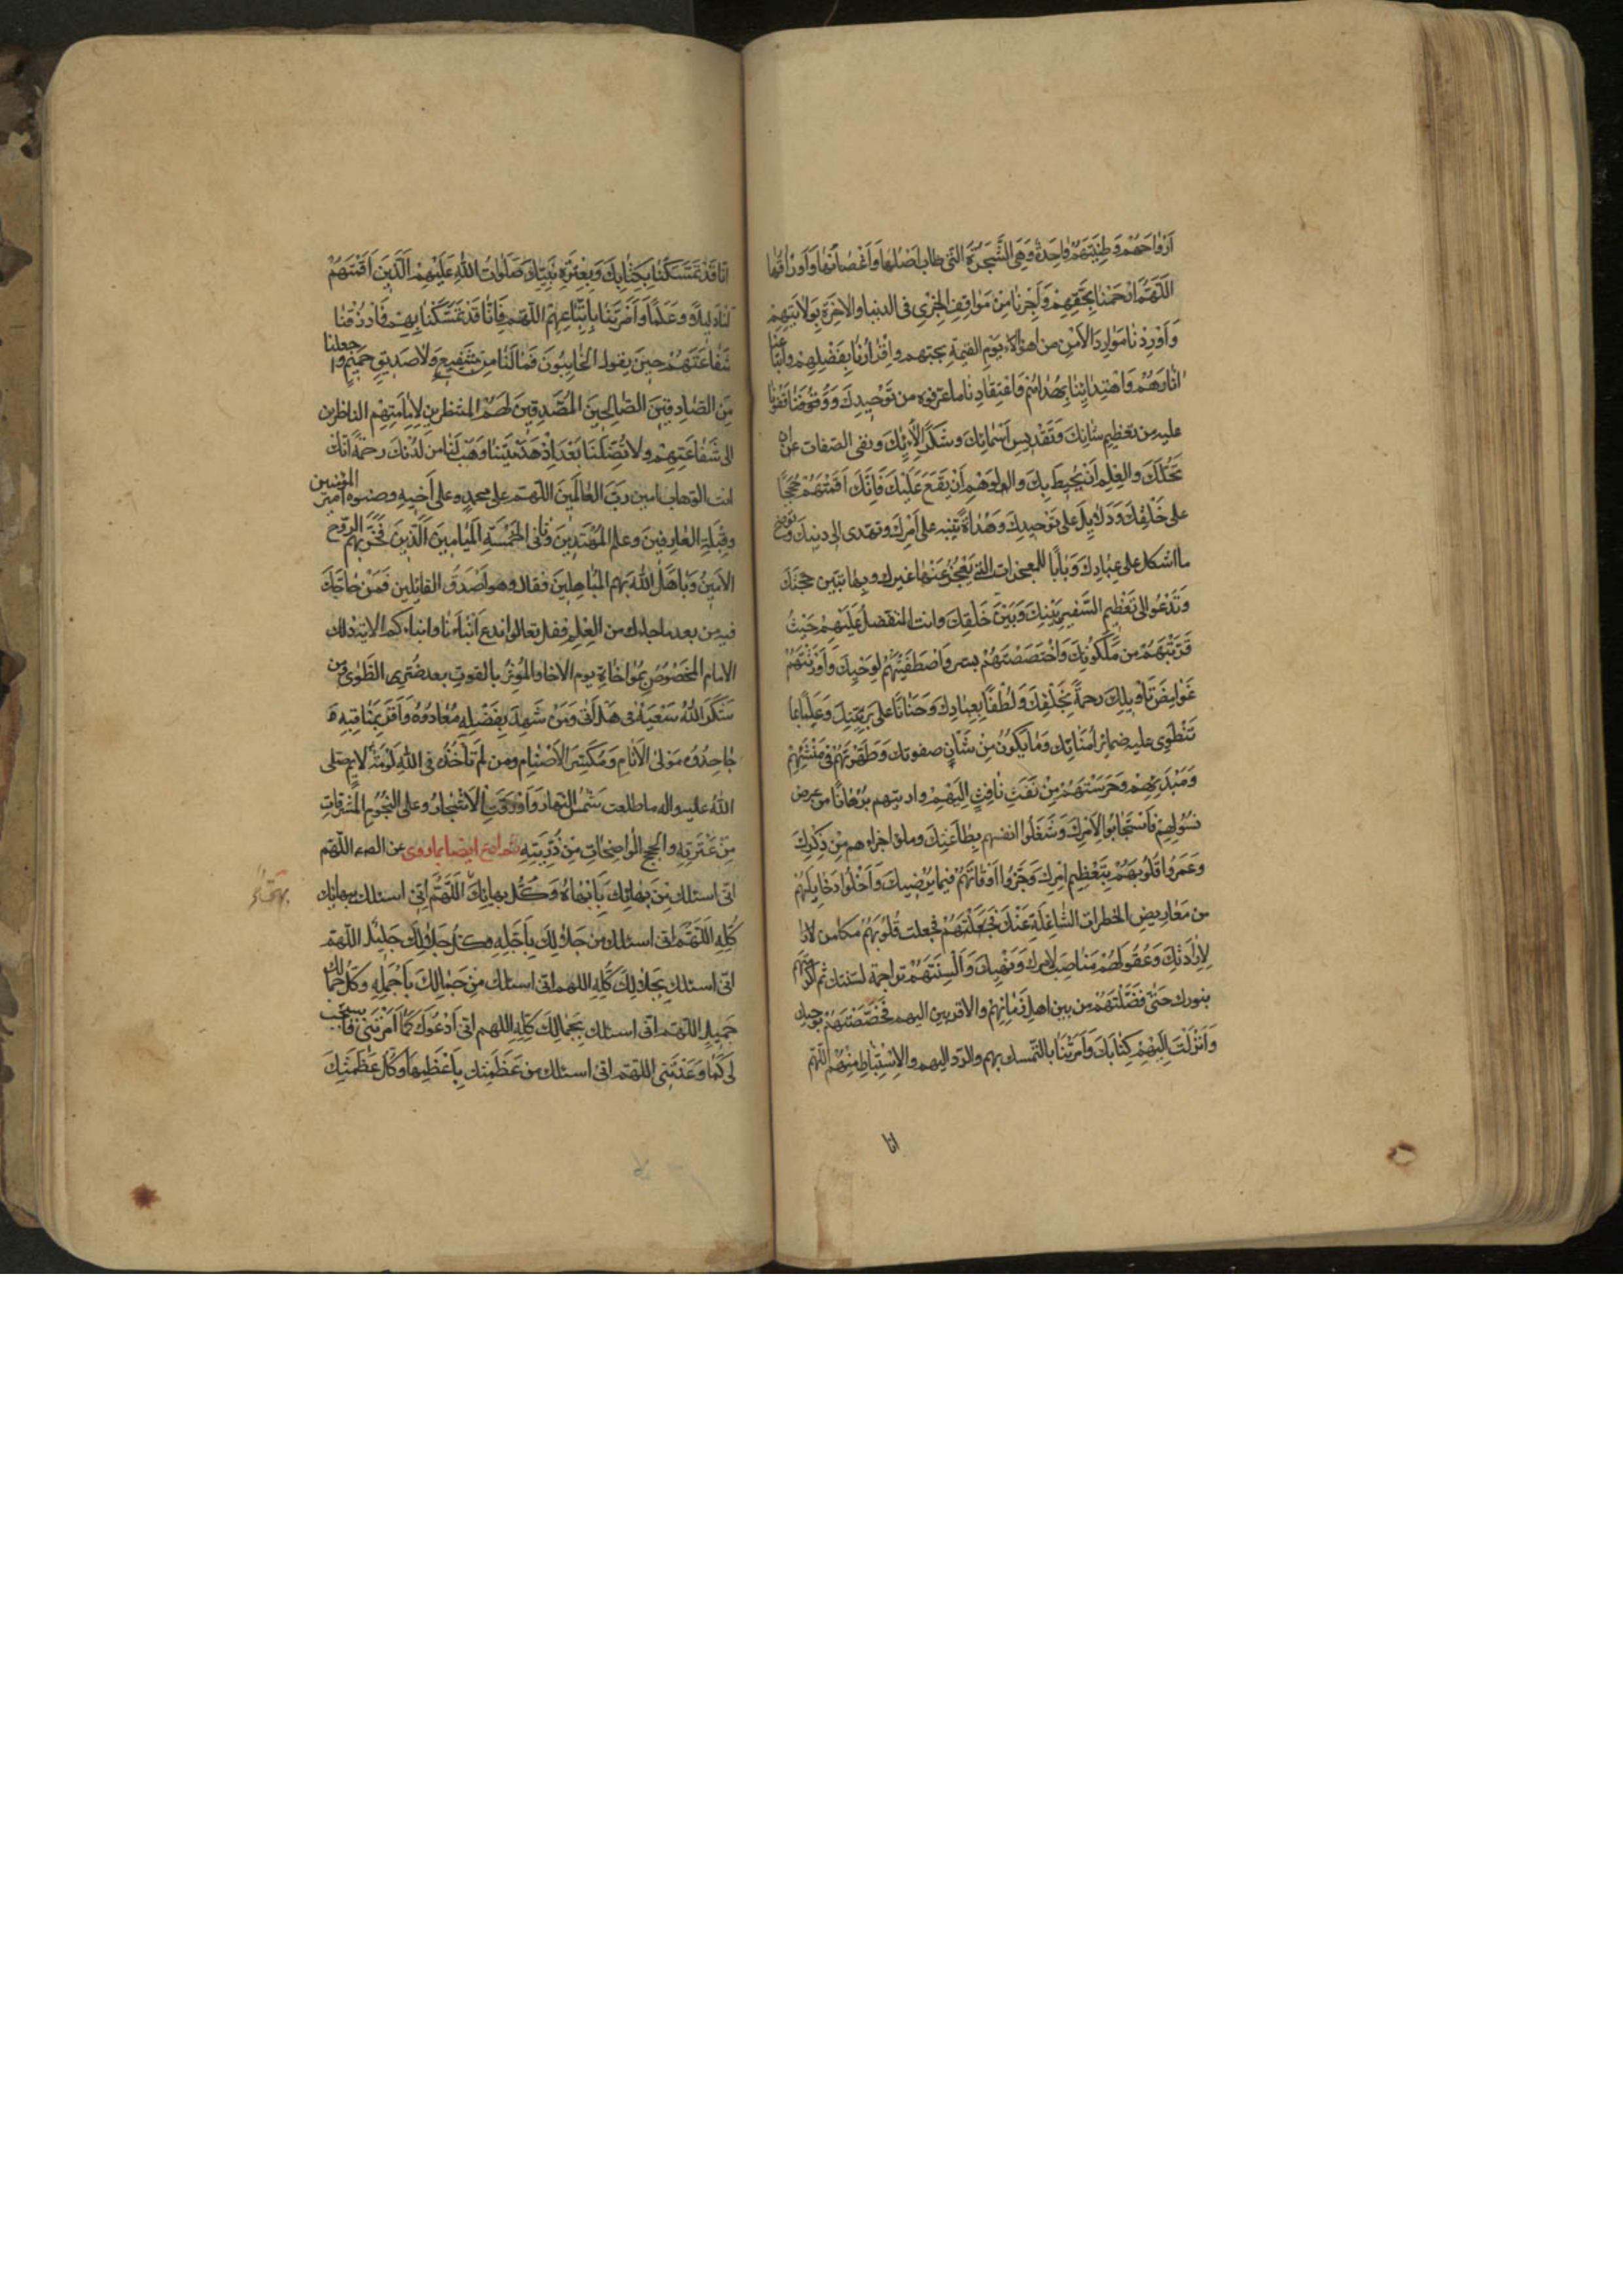 اَرْواحَهُمْ وَطِينَتَهُمْ واحِدَةٌ وَهِيَ الشَّجَرَةُ الَّتي طابَ اَصْلُها وَاَغْصانُها وَاَوْراقُها
اَللّهُمَّ ارْحَمْنا بِحَقِّهِمْ وَاَجِرْنا مِنْ مَواقِفِ الخِزْيِ فى الدنيا والاخِرَةِ بِوِلايَتِهِمْ
وَاَوْرِدْنا مَوارِدَ الاَمْنِ من اهوال يَوْمِ القيمةِ بحبّهم واِقْرارِنا بِفَضْلِهِمْ واتّباعنا
اثارَهُمْ وَاهْتِدائِنا بِهُداهُمْ وَاعْتِقادِنا ما عرّفوه من تَوْحيدِكَ وَوَقّفونا
عليه من تعظيم شانِكَ وَتَقْديسِ اَسْمائِكَ وشكر الائِكَ ونفى الصّفات عن
تَحُلَّكَ والعِلْمِ اَنْ يُحيطَ بِكَ والوَهْمِ اَنْ يَقَعَ عَلَيْكَ فَاِنَّكَ اَقَمْتَهُمْ حُجَجًا
على خَلْقِكَ وَدَلائِلَ على تَوْحيدِكَ وَهُداةً تنبّه على اَمْرِكَ وتهدى الى دينِكَ وتوضح
ما اشكل على عِبادِكَ وَبابًا للمعجزات التي يَعْجُزُ عَنْها غيرك وبِها تبين حجّتك
وَتَدْعُو الى تَعْظيمِ السَّفيرِ بَيْنَكَ وَبَيْنَ خَلْقِكَ وانت المتفضّل عَلَيْهِمْ حَيْثُ
قَرَّبْتَهُمْ من مَلَكُوتِكَ وَاخْتَصَصْتَهُمْ بسرّك وَاصْطَفَيْتَهُمْ لِوَحْيِكَ وَاَوْرَثْتَهُمْ
غَوامِضَ تَأْويلِكَ رحمةً بِخَلْقِكَ وَلُطْفًا بِعِبادِكَ وَحَنانًا على بَرِيَّتِكَ وَعِلْمًا بما
تَنْطَوى عليه ضمائر اُمَنائِكَ وَما يَكُونُ مِنْ شَاْنِ صفوتك وَطَهَّرْتَهُمْ في مَنْشَئِهِمْ
وَمُبْتَدَئِهِمْ وَحَرَسْتَهُمْ مِنْ نَفْثِ نافِثٍ اِلَيْهِمْ واريتهم بُرْهانًا من عرض
بسُوءٍ لهم فَاسْتَجابُوا لاَمْرِكَ وَشَغَلُوا انفسهم بِطاعَتِكَ وملؤا اجزاءهم مِنْ ذِكْرِكَ
وَعَمَرُوا قُلُوبَهُمْ بِتَعْظيمِ اَمْرِكَ وَجَزَّوُا اَوْقاتَهُمْ فيما يُرْضيكَ وَاَخْلَوْا دَخايِلَهُمْ
من مَعاريضِ الخطرات الشّاغِلَةِ عَنْكَ فَجَعَلْتَ قُلُوبَهُمْ مكامن
لاِرادَتِكَ وَعُقُولَهُمْ مَناصِبَ لامرك وَنَهْيِكَ وَاَلْسِنَتَهُمْ تراجمة لسنّتك ثم اكرمتهم
بنورك حَتّى فَضَّلْتَهُمْ من بين اهل زَمانِهِمْ والاقربين اليهم فَخَصَصْتَهُمْ بوحيك
وَاَنْزَلْتَ اِلَيْهِمْ كِتابَكَ وَاَمَرْتَنا بالتّمسك بهم والردّ اليهم والاِسْتِنْباطِ مِنْهُمْ اللّهمّ
انا
انّا قَدْ تَمَسَّكْنا بِكِتابِكَ وَبِعِتْرَةِ نَبِيِّكَ صَلَواتُ اللهِ عَلَيْهِمْ الَّذينَ اَقَمْتَهُمْ
لَنا دَليلاً وعَلَمًا وَاَمَرْتَنا بِاتِّباعِهِمْ اللّهمّ فَاِنّا قَدْ تَمَسَّكْنا بِهِمْ فَارْزُقْنا
شَفاعَتَهُمْ حينَ يقول الخائِبُونَ فَما لَنا مِنْ شَفيعٍ وَلا صَديقٍ حَميمٍ واجعلنا
مِنَ الصّادِقينَ الصّالِحينَ المُصَدِّقينَ لَهُمْ المنتظرينَ لاَيّامِهِمْ الناظرين
الى شَفاعَتِهِمْ ولا تُضِلَّنا بَعْدَ اِذْ هَدَيْتَنا وَهَبْ لَنا من لَدُنْكَ رحمةً انّك
انت الوهّاب امين رَبَّ العالَمينَ اللّهمّ على محمدٍ وعلى اَخيهِ وصنوه امير المؤمنين
وقِبْلَةِ العارِفينَ وعلم المُهْتَدينَ وثاني الخَمْسَةِ المَيامينَ الَّذينَ فَخَرَ بِهِمُ الرّوح
الاَمينُ وَباهَلَ اللهُ بهم المُباهِلينَ فَقالَ وهو اَصْدَقُ القائلين فَمَنْ حاجَّكَ
فيه من بعد ما جاءك من العِلْمِ فقل تعالوا ندع اَبْناءَنا وابناءكم الاية ذلك
الامام المَخْصُوصُ بِمُواخاتِهِ يوم الاخا والمُؤثِرُ بالقوتِ بعد ضُرِّ الطَّوى من
شَكَرَ اللهُ سَعْيَهُ فى هَلْ اَتى وَمَنْ شَهِدَ بِفَضْلِهِ مُعادُوهُ وَاَقَرَّ بِمَناقِبِهِ
جاحِدُوهُ مَوْلى الاَنامِ وَمُكَسِّرُ الاَصْنامِ ومن لَمْ تَأْخُذْهُ فى اللهِ لَوْمَةُ لائم صلى
اللهُ عليه واله ما طلعت شَمْسُ النّهارِ وَاَوْرَقَتِ الاَشْجارُ وعلى النّجُومِ المُشْرِقاتِ
مِنْ عِتْرَتِهِ والحجج الواضِحاتِ مِنْ ذُرِّيَتِهِ ايضا مما روى عن اللّهمّ
انّى اسئلك مِنْ بَهائِكَ بِاَبْهاهُ وَكُلُّ بهائِكَ اَللّهُمَّ اِنّى اسئلك ببهائك
بهىّ
كُلِّهِ اَللّهُمَّ انى اسئلك من جَلالِكَ بِاَجَلِّهِ وكلّ جَلالِكَ جَليلٌ اللّهمّ
انّى اسئلك بِجَلالِكَ كُلِّهِ اللهم انى اسئلك مِنْ جَمالِكَ بِاَجْمَلِهِ وَكُلُّ جمالك
جَميلٌ اللّهمّ انى اسئلك بِجَمالِكَ كُلِّهِ اللهم انى اَدْعُوكَ كَما اَمَرْتَنى فاستجب
لى كَما وَعَدْتَنى اللهمّ انى اسئلك من عَظَمَتِكَ بِاَعْظَمِها وَكُلُّ عَظَمَتِكَ